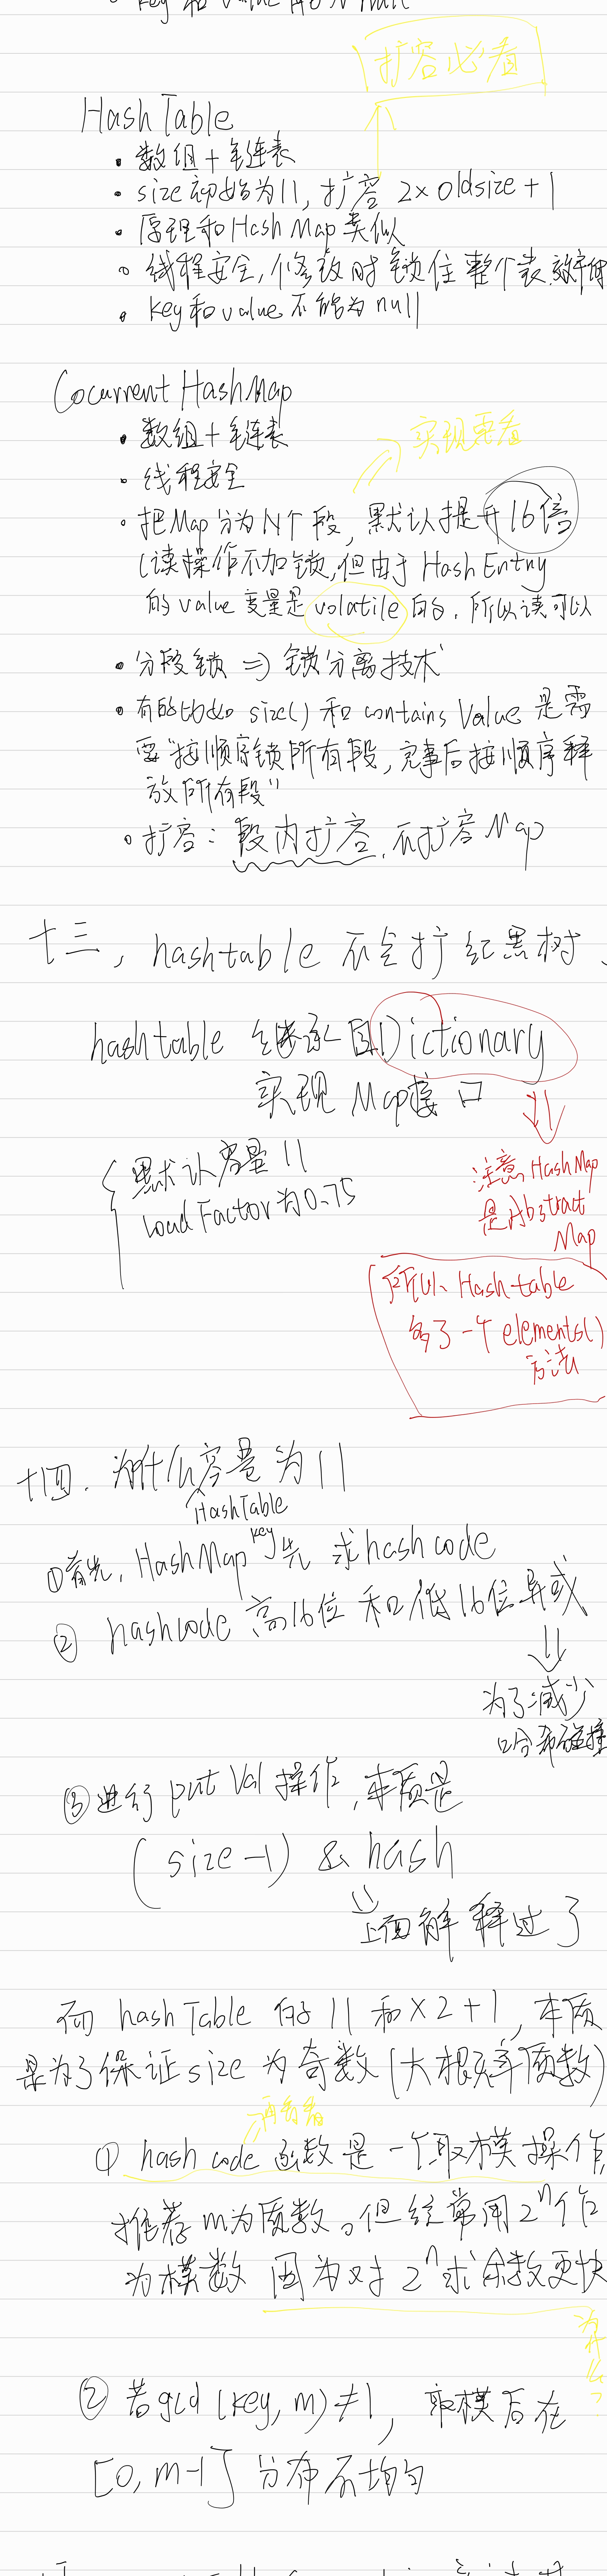 key和value
扩容必看
HashTable
• 数组+链表
• size初始为11, 扩容 2×oldsize+1
• 原理和Hash Map类似
• 线程安全, 修改时锁住整个表,
• key和value不能为null
Cocurrent HashMap
• 数组+链表
实现要看
• 线程安全
• 把Map分为N个段, 默认提升16倍
(读操作不加锁,但由于 Hash Entry
的value变量是volatile的. 所以读可以
• 分段锁 => 锁分离技术
• 有的比如 size() 和 contains Value 是需
要“按顺序锁所有段, 完事后按顺序释
放所有段”
• 扩容: 段内扩容, 不扩容Map
十三, hashtable 不会扩红黑树
hashtable 继承自Dictionary
实现 Map接口
默认容量11
Load Factor为0.75
注意HashMap
是Abstract
Map
所以 Hashtable
多了一个elements()
方法
十四. 为什么容量为11
HashTable
①首先, HashMap key先 求hashcode
② hashcode 高16位和低16位异或
为了减少
哈希碰撞
③进行put Val 操作, 本质是
(size-1) & hash
上面解释过了
而 hashTable 的 11 和×2+1, 本质
是为了保证size为奇数(大概率质数)
再看看
① hash code 函数是一个取模操作,
推荐m为质数。但经常用2ⁿ作
为模数 因为对 2ⁿ求余数更快
为什么?
② 若gcd (key, m) ≠1, 取模后在
[0, m-1] 分布不均匀